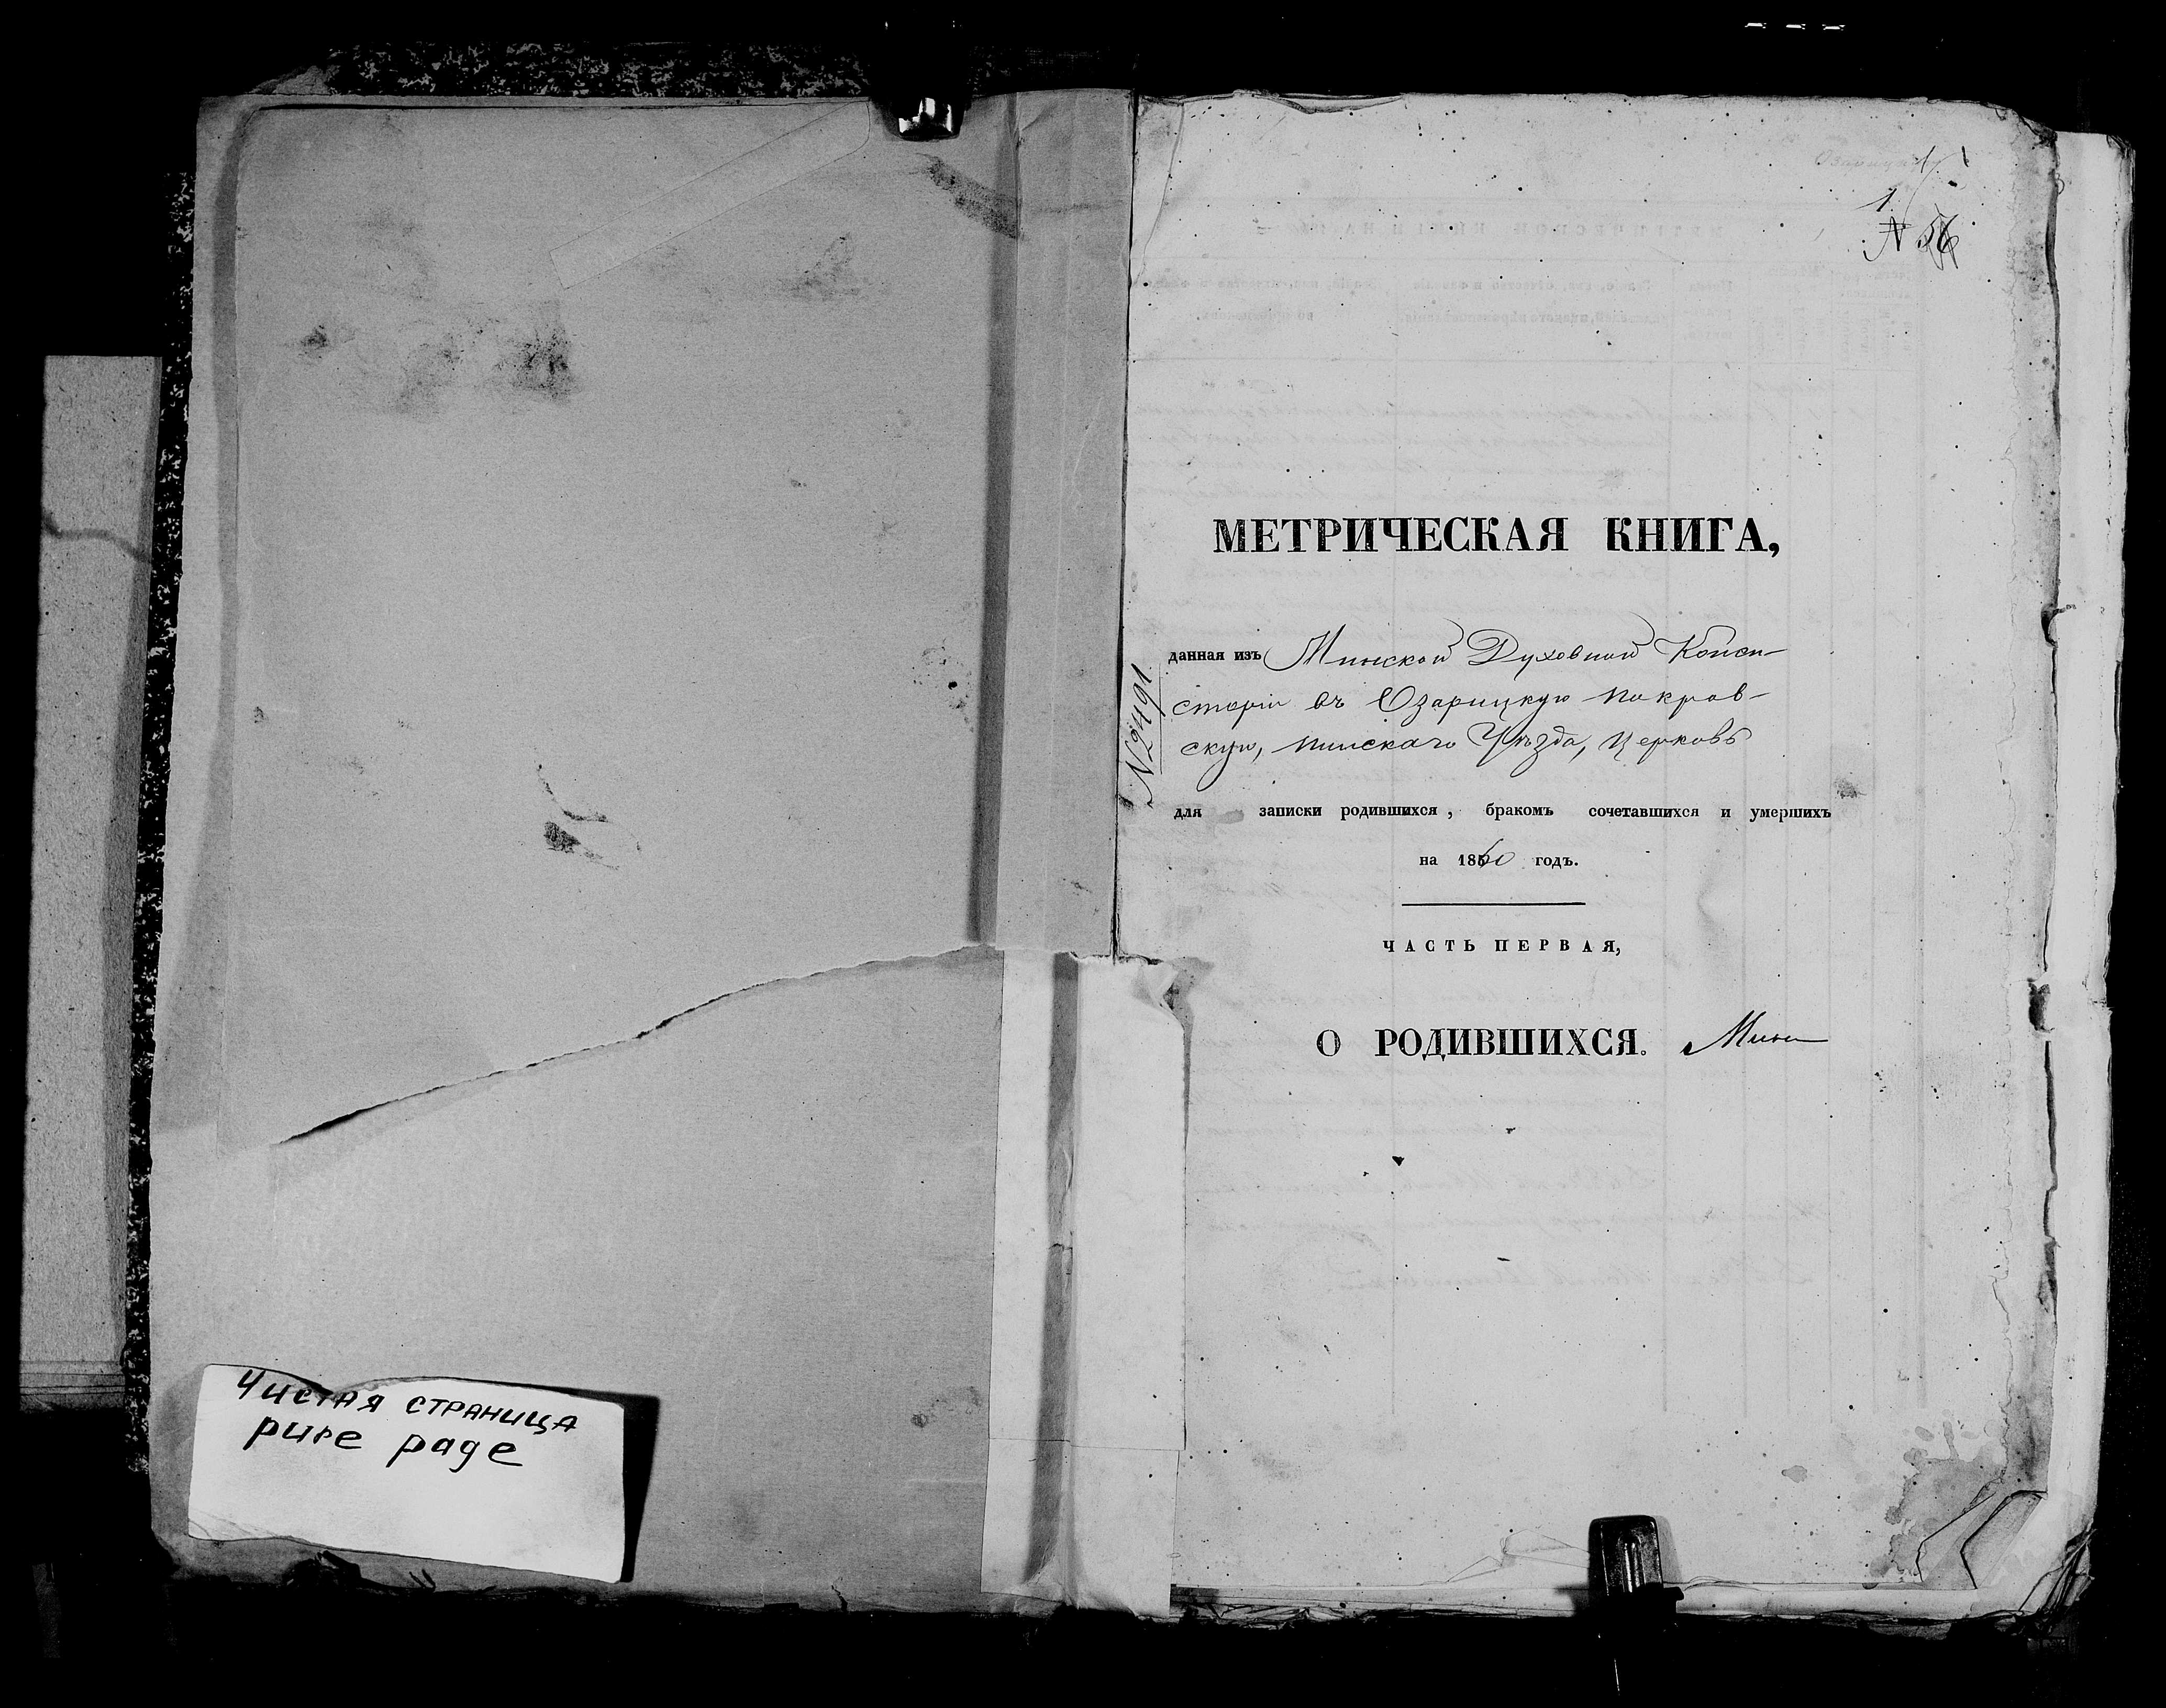 Чистая страница
pure page
1
№ 56
МЕТРИЧЕСКАЯ КНИГА,
данная изъ Минской Духовной Конси-
сторіи въ Озарицкую Покров-
скую, Пинскаго Уѣзда, Церковь
№ 2491
для записки родившихся, бракомъ сочетавшихся и умершихъ
на 1860 годъ.
ЧАСТЬ ПЕРВАЯ,
О РОДИВШИХСЯ.